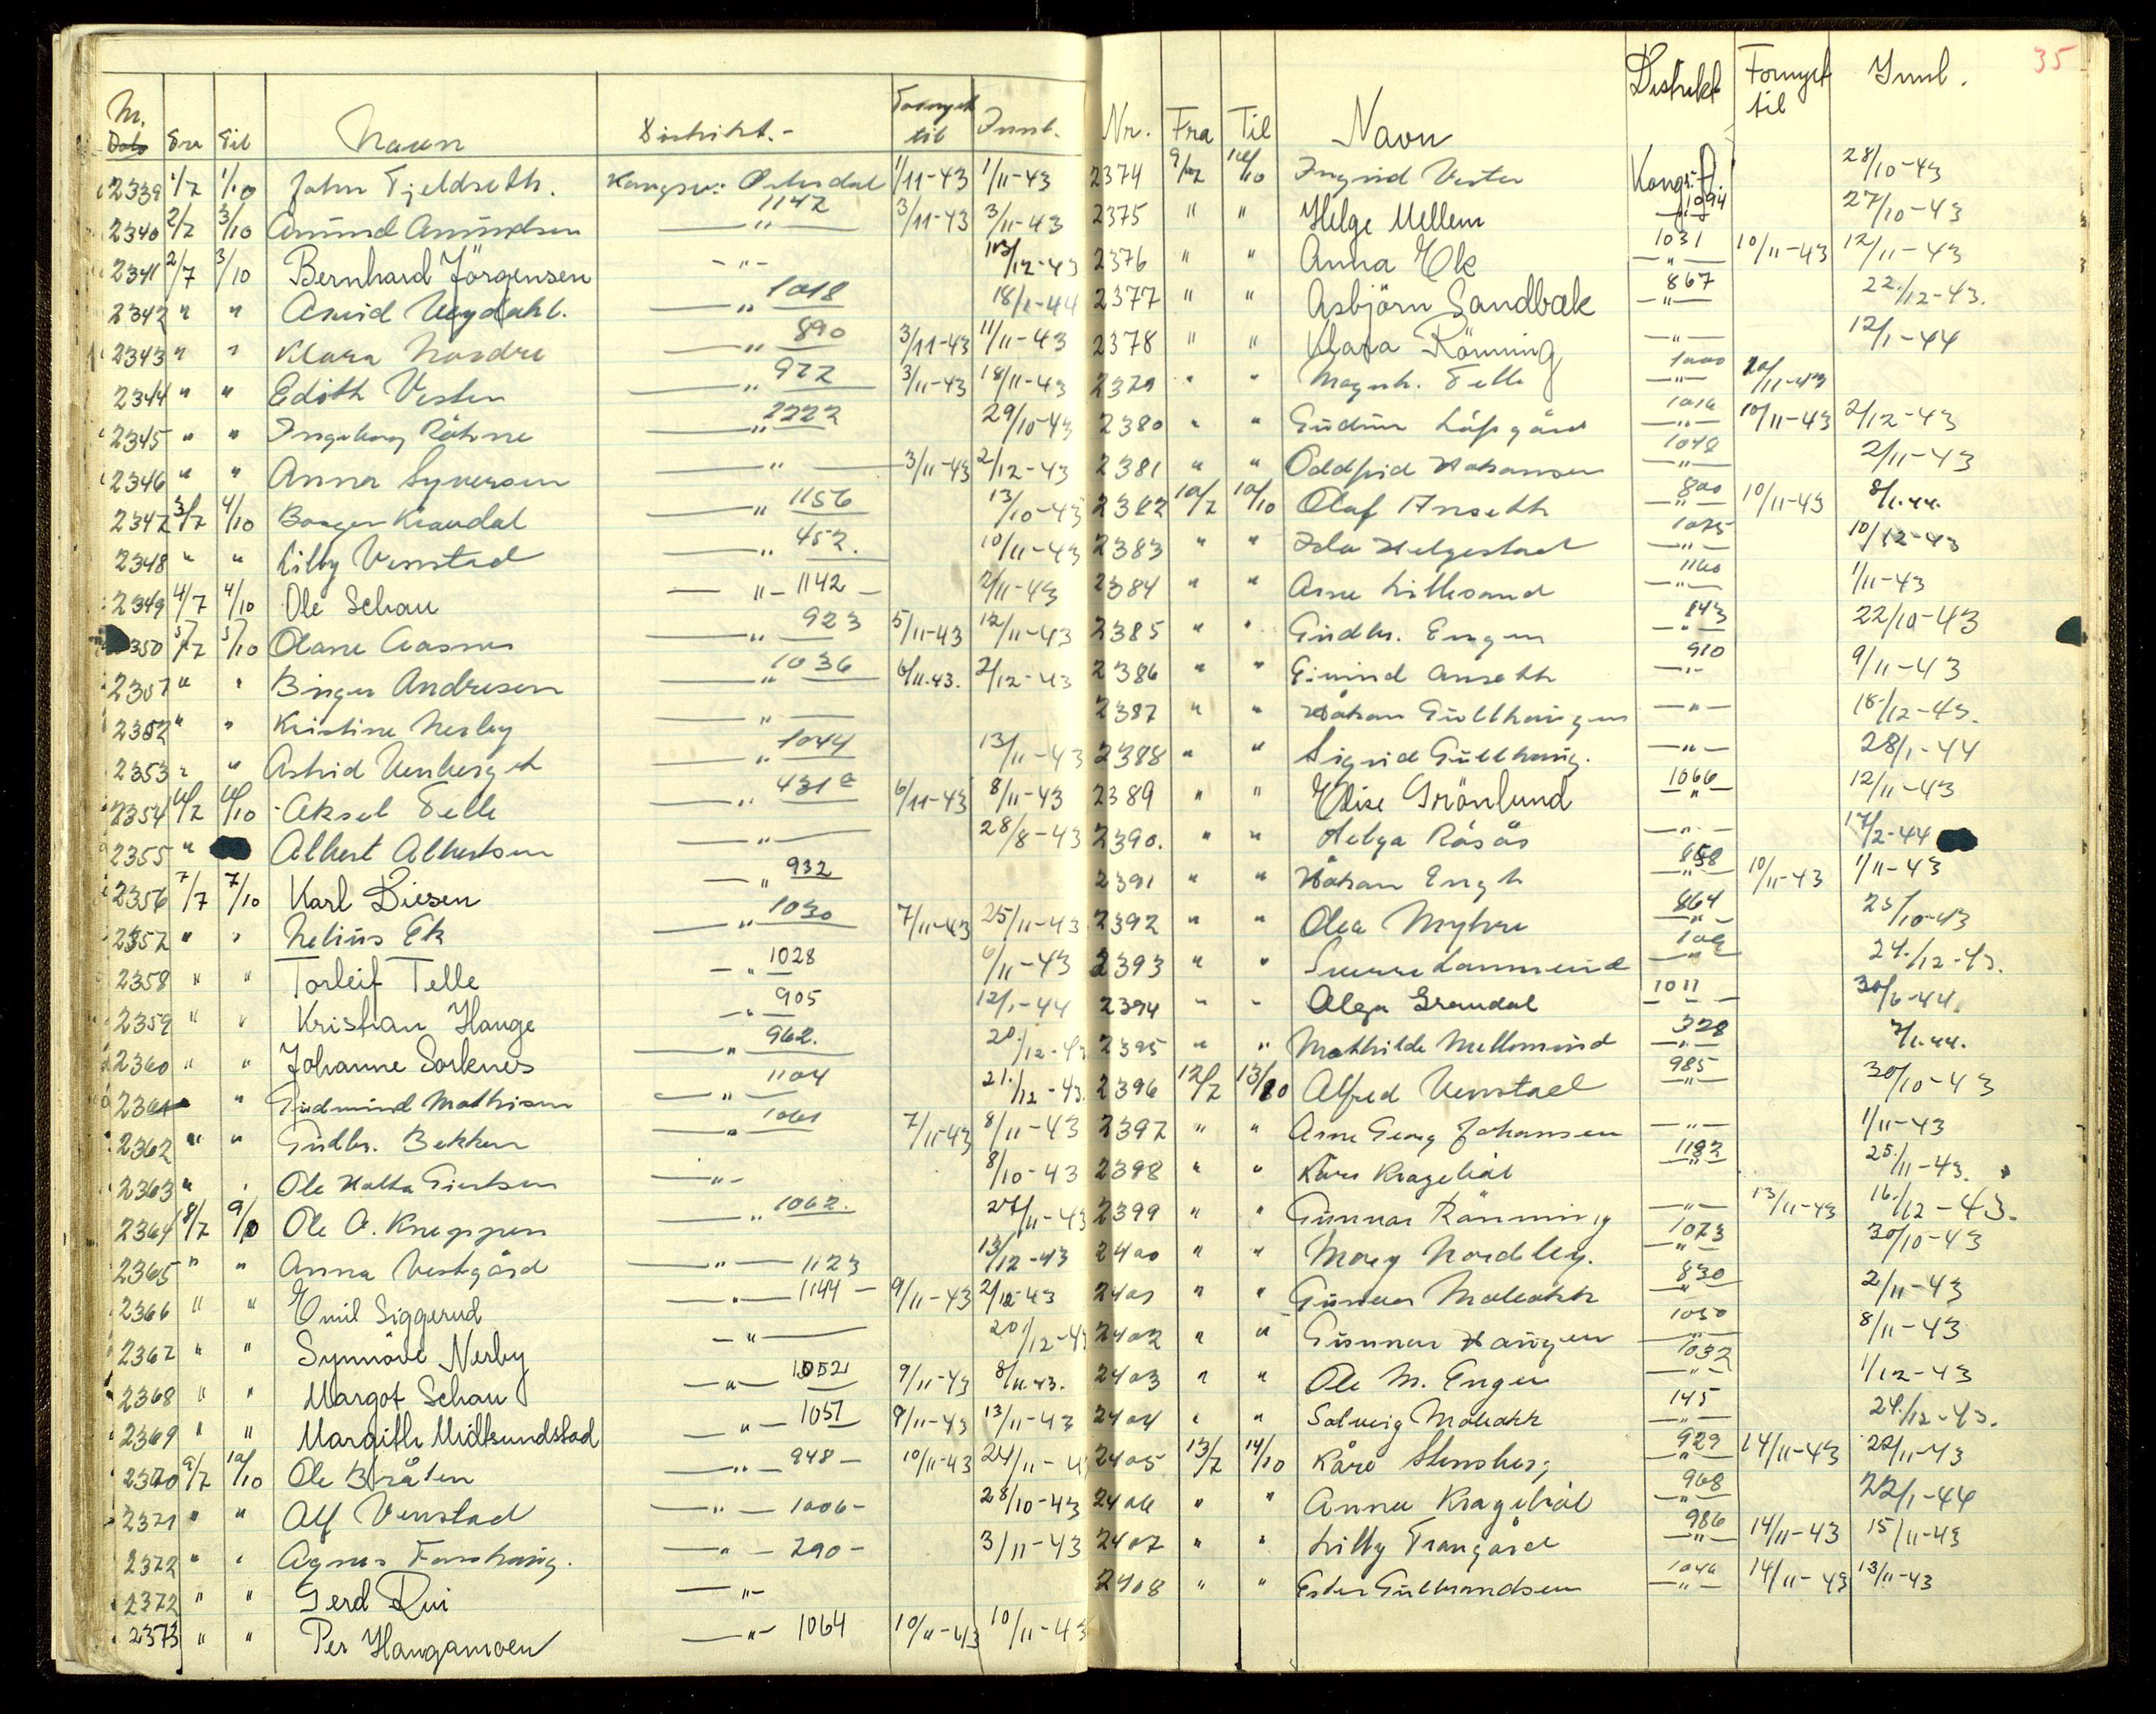 35
Nr. Dato Fra Til Navn Distrikt.- Fornyet til Innl.
2339 1/7 1/10 John Fjeldseth. Kongsv: Østerdal 1/11-43 1/11-43
2340 2/7 3/10 Amund Amundsen —"— 1142 3/11-43 3/11-43
2341 2/7 3/10 Bernhard Jörgensen -"- 13/12-43
2342 " " Arvid —"— 1018 18/1-44
2343 " " Klara Nordre —"— 890 3/11-43 11/11-43
2344 " " Edith Vesten —"— 922 3/11-43 18/11-43
2345 " " Ingeborg —"— 2222 29/10-43
2346 " " Anna Syversen —"— 3/11-43 2/12-43
2347 3/7 4/10 —"— 1156 13/10-43
2348 " " Lilly Venstad —"— 452. 10/11-43
2349 4/7 4/10 Ole Schau —"— 1142 — 2/11-43
2350 5/7 5/10 Olane Aasnes —"— 923 5/11-43 12/11-43
2351 " " Birger Andresen —"— 1036 6/11.43. 2/12-43
2352 " " Kristine Nerby —"—
2353 " " Astrid Venberget —"— 1044 13/11-43
2354 6/7 6/10 Aksel Telle —"— 431a 6/11-43 8/11-43
2355 " Albert Albertsen —"— 28/8-43
2356 7/7 7/10 Karl Diesen —"— 932
2357 " " Nelius Ek —"— 1030 7/11-43 25/11-43
2358 " " Torleif Telle —"— 1028 6/11-43
2359 " " Kristian Hauge —"— 905 12/1-44
2360 " " Johanne Sorknes —"— 962. 20./12-43
2361 " Gudmund Mathisen —"— 1104 21./12-43.
2362 " " Gudbr. Bekken —"— 1061 7/11-43 8/11-43
2363 " " Ole Holta Giertsen —"- 8/10-43
2364 8/7 9/10 Ole O. Kneppen —"— 1062. 27/11-43
2365 " " Anna Vestgård —"— 1123 13/12-43
2366 " " Emil Siggerud —"— 1144 — 9/11-43 2/12-43
2367 " " Synnöve Nerby —"— 20./12-43
2368 " " Margot Schau —"— 1052 9/11-43 8/11.43.
2369 " " Margith Midtsundstad —"— 1051 9/11-43 13/11-43
2370 9/7 10/10 Ole Bråten —"— 948 — 10/11-43 24/11-43
2371 " " Alf Venstad —"— 1006- 28/10-43
2372 " " Agnes —"— 290- 3/11-43
2372 " " Gerd Rui —"-
2373 " " Per Haugamoen —"— 1064 10/11-43 10/11-43
Nr. Fra Til Navn Distrikt Fornyet til Innl.
2374 9/7 10/10 Ingrid Vesten Kongsv. 28/10-43
2375 " " Helge Mellem 1094 27/10-43
2376 " " Anna Ek 1031 10/11-43 12/11-43
2377 " " Asbjörn Sandbæk 867 22./12-43.
2378 " " Klara Rönning —"— 12/1-44
2379 " " Magnh. Telle 1000 10/11-43
2380 " " Gudrun 1016 10/11-43 2/12-43
2381 " " Oddfrid Håkansen 1048 2/11-43
2382 10/7 10/10 Olaf Anseth 800 10/11-43 8/1.44.
2383 " " Ida Helgestad 1025 10/12-43
2384 " " Arne Lillesand 1160 1/11-43
2385 " " Gudbr. Engen 843 22/10-43
2386 " " Eivind Anseth 910 9/11-43
2387 " " Håkan Gullhaugen —"— 18./12-43.
2388 " " Sigrid Gullhaug. —"— 28/1-44
2389 " " Elise Grönlund 1066 12/11-43
2390. " " Helga Råsås —"— 17/2-44
2391 " " Håkan Engh 858 10/11-43 1/11-43
2392 " " Olea Myhre 864 25/10-43
2393 " " Sverre 24./12-43.
2394 " " Olga Grandal 1011 30/6-44.
2395 " " Mathilde Mellemund 328 7/1.44.
2396 12/7 13/10 Alfred Venstad 985 30/10-43
2397 " " Arne Georg Johansen —"— 1/11-43
2398 " " Kåre Kragebøl 1182 25./11-43.
2399 " " Gunnar Rönning —"— 13/11-43 16./12-43.
2400 " " Mary Nordby. 1073 30/10-43
2401 " " Gunnar Moltakk 830 2/11-43
2402 " " Gunnar Haugen 1050 8/11-43
2403 " " Ole M. Enger 1032 1/12-43
2404 " " Solveig Moltakk 145 24./12-43.
2405 13/7 14/10 Kåre Stensberg 929 14/11-43 22/11-43
2406 " " Anna Kragebøl 968 22/1-44
2407 " " Lilly Trangård 986 14/11-43 15/11-43
2408 " " Ester Gulbrandsen 1046 14/11-43 13/11-43